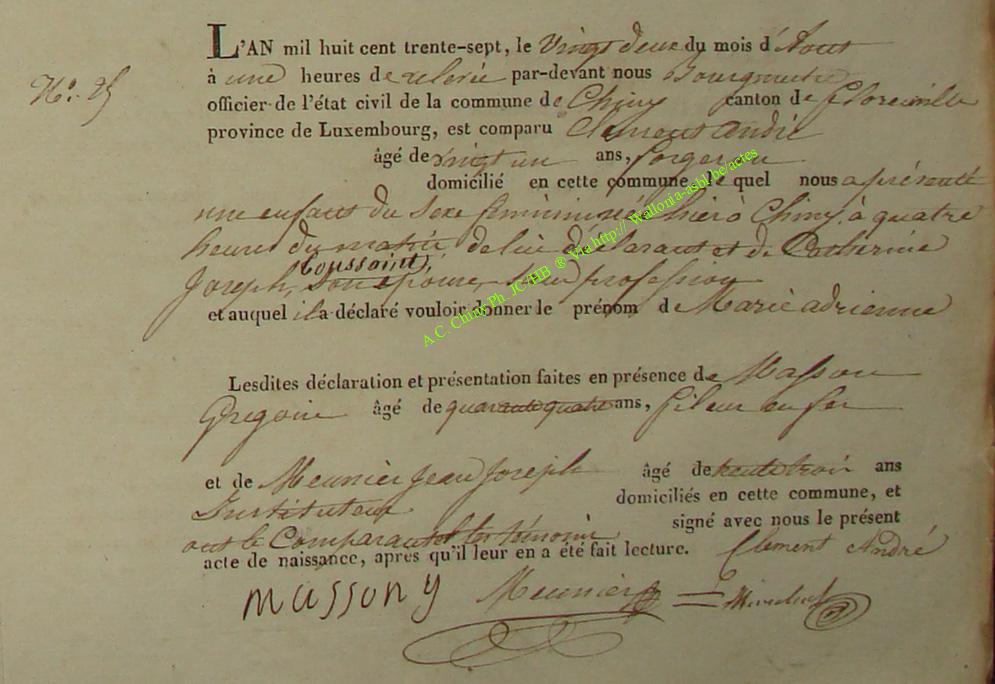 L'AN mil huit cent trente-sept, le Vingt deux du mois d'Aout
N.º 25
à une heures de relevée par-devant nous Bourgmestre
officier de l'état civil de la commune de Chiny canton de Florenville
province de Luxembourg, est comparu Clement andré
âgé de vingt un ans, forgeron
domicilié en cette commune le quel nous a présenté
une enfant du sexe feminin née hier à Chiny, à quatre
heures du matin de lui déclarant et de Catherine
Toussaint,
Joseph, son épouse, profession
et auquel il a déclaré vouloir donner le prénom de Marie adrienne
Lesdites déclaration et présentation faites en présence de Masson
Gregoire âgé de quarante quatre ans, fileur en fer
et de Meunier Jean Joseph âgé de trente trois ans
Instituteur domiciliés en cette commune, et
ont le Comparant et les témoins signé avec nous le présent
acte de naissance, après qu'il leur en a été fait lecture. Clément André
massony Meunier
A.C. Chiny Ph. JC HB ® Via http:// Wallonia-asbl.be/actes